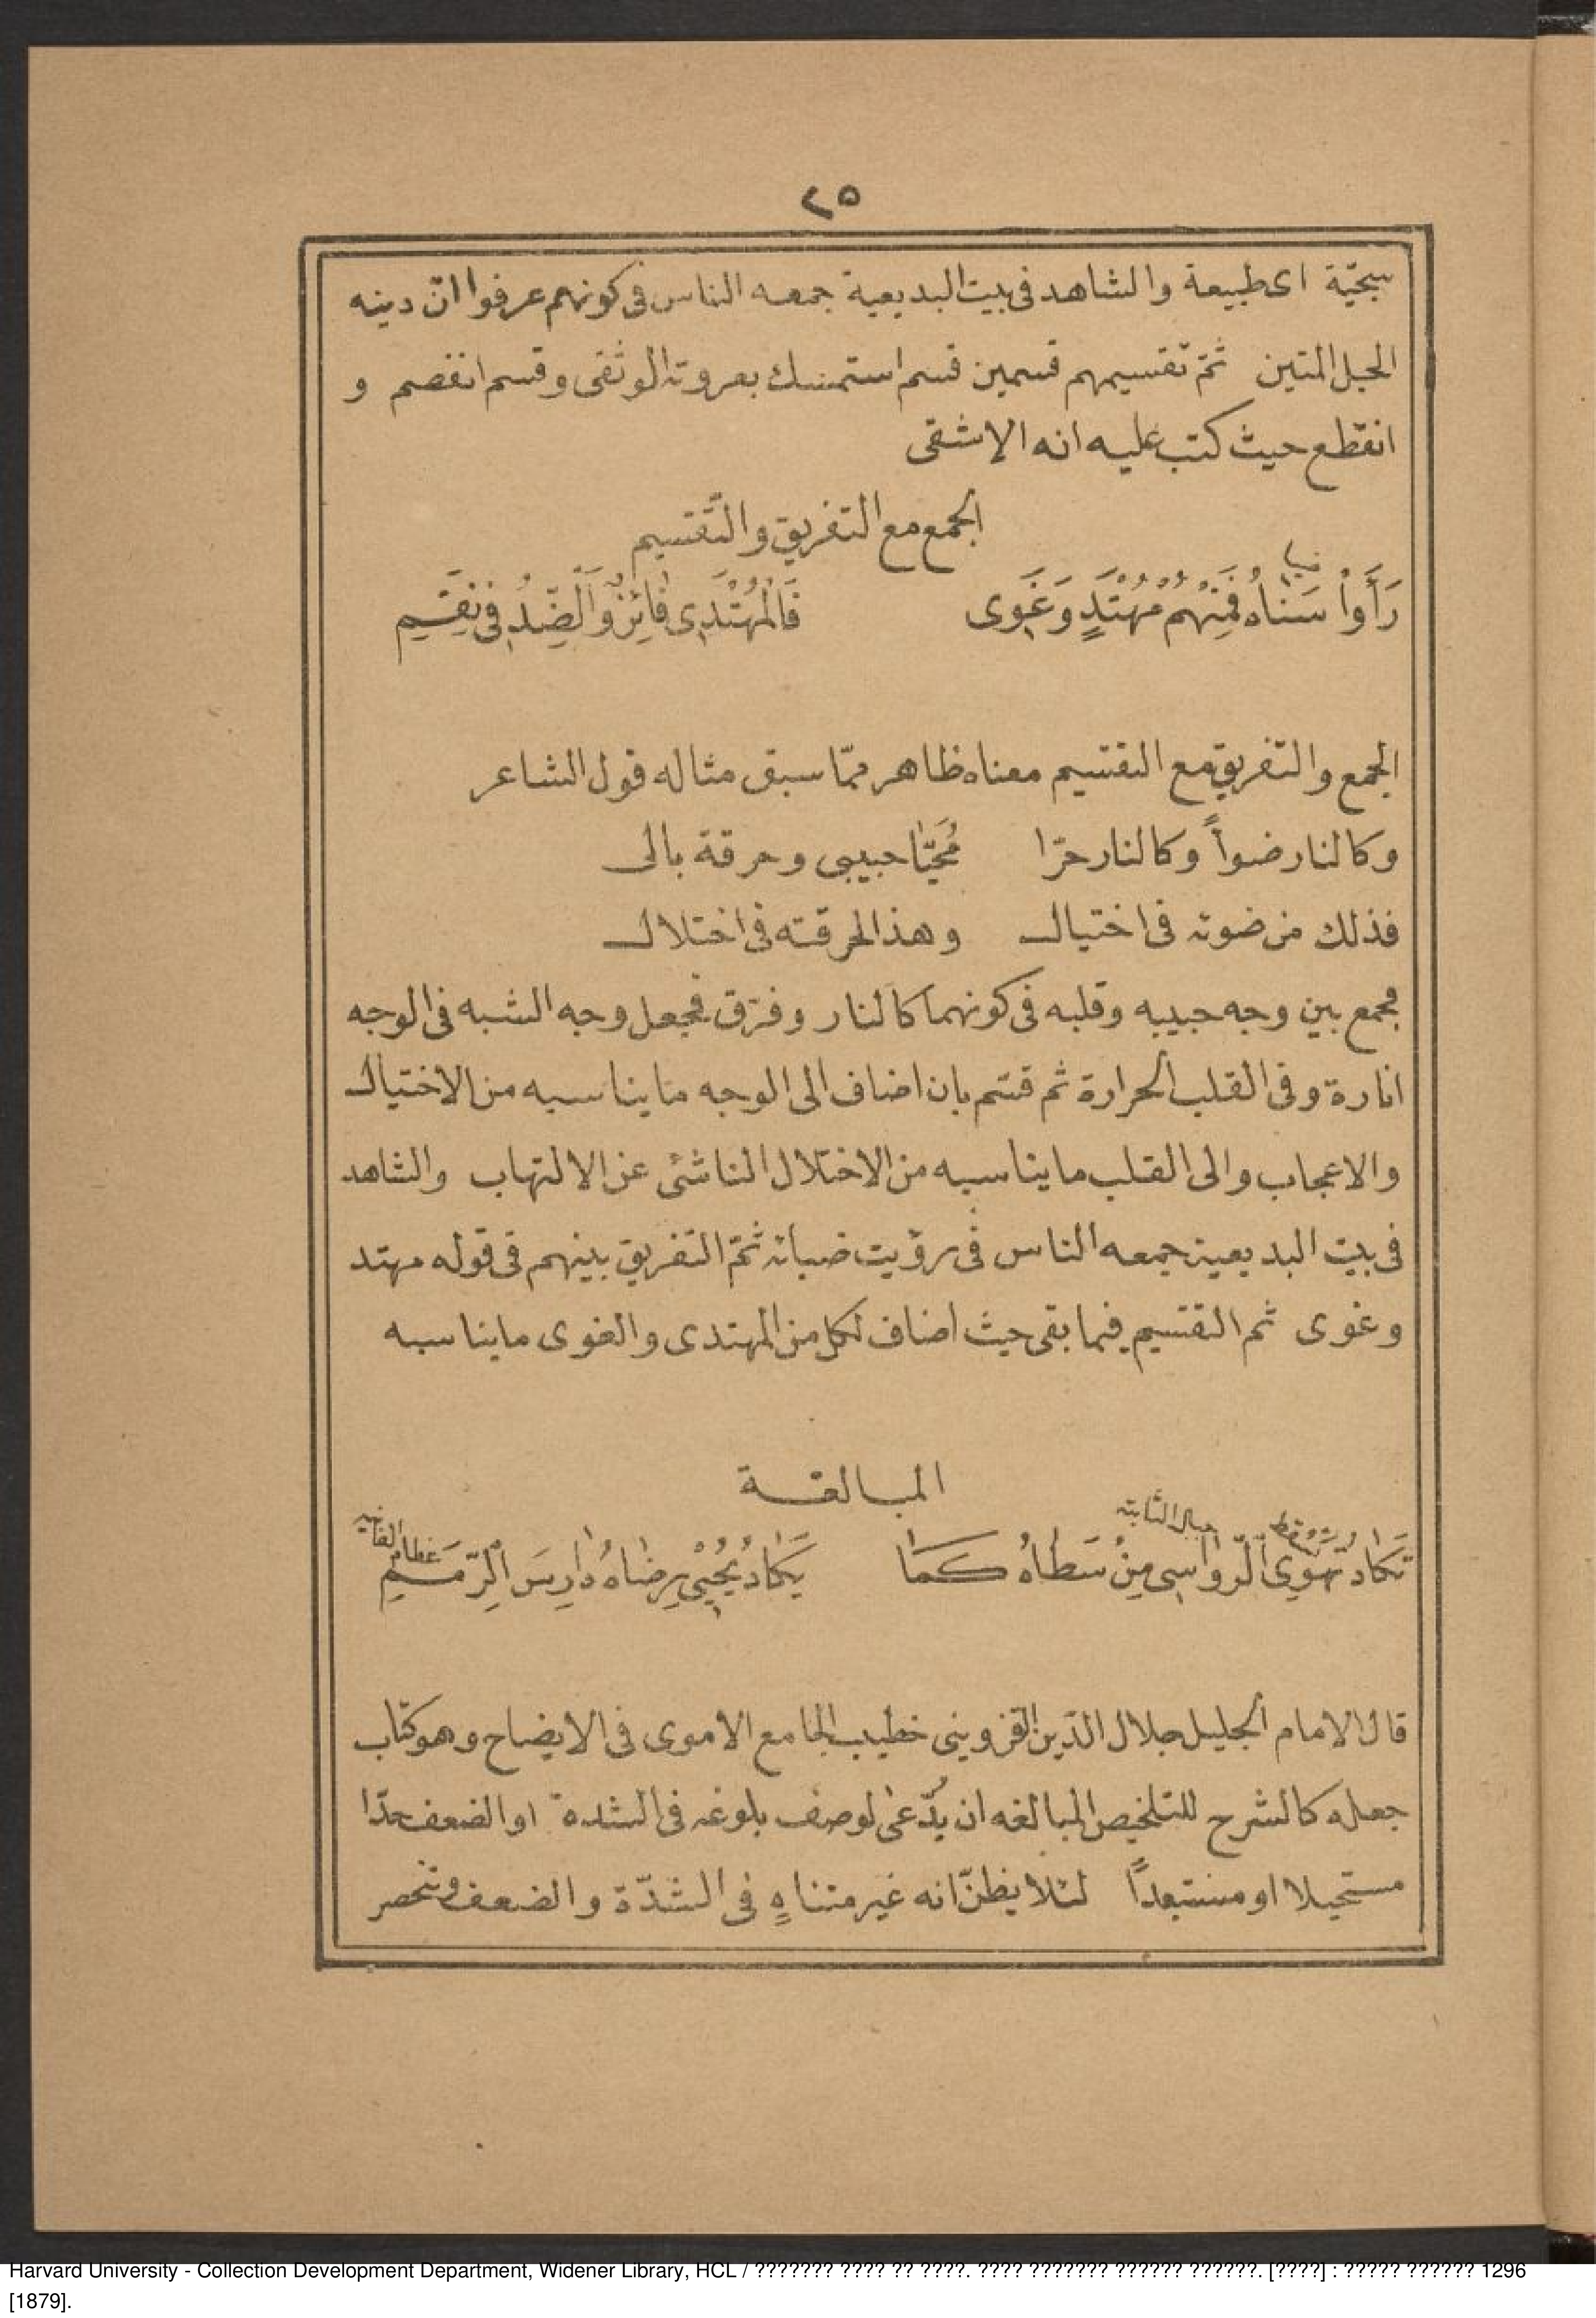 ٢٥
سجيّة اى طبيعة والشاهد فى بيت البديعية جمعه الناس فى كونهم عرفوا انّ دينه
الحبل المتين ثمّ تقسيمهم قسمين قسم استمسك بعروته الوثقى وقسم انفصم و
انقطع حيث كتب عليه انه الاشقى
الجمع مع التفريق والتّقسيم
ضيا
رَأَوْا سَنَاهُ فَمِنْهُمْ مُهْتَدٍ وَغَوِى فَالْمُهْتَدِى فَائِزٌ وَالضِّدُ فِى نِقَمِ
الجمع والتّفريق مع التقسيم معناه ظاهر ممّا سبق مثاله قول الشاعر
وكالنار ضوأً وكالنار حرّا مُحَيّا حبيبى وحرقة بالى
فذلك من ضوئه فى اختيال وهذا لحرقته فى اختلال
فجمع بين وجه حبيبه وقلبه فى كونهما كالنار وفرّق فجعل وجه الشبه فى الوجه
انارة وفى القلب الحرارة ثم قسّم بان اضاف الى الوجه ما يناسبه من الاختيال
والاعجاب والى القلب ما يناسبه من الاختلال الناشئ عن الالتهاب والشاهد
فى بيت البديعية جمعه الناس فى رؤيت ضيائه ثمّ التفريق بينهم فى قوله مهتد
وغوى ثم التقسيم فيما بقى حيث اضاف لكل من المهتدى والغوى ما يناسبه
المبالغة
تسقط جبال الثابته عظام الفانيه
تَكَادُ تَهْوِي الرَّوَاسِى مِنْ سَطَاهُ كَمَا يَكَادُ يُحْيِى رِضَاهُ دَارِسَ الرِّمَمِ
قال الامام الجليل جلال الدّين القزوينى خطيب الجامع الاموى فى الايضاح وهو كتاب
جعله كالشرح للتلخيص المبالغه ان يدّعى لوصف بلوغه فى الشدة او الضعف حدّا
مستحيلا او مستبعداً لئلا يظنّ انه غير متناهٍ فى الشدّة والضعف وتنحصر
Harvard University - Collection Development Department, Widener Library, HCL / ??????? ???? ?? ????. ???? ??????? ?????? ??????. [????] : ????? ?????? 1296
[1879].